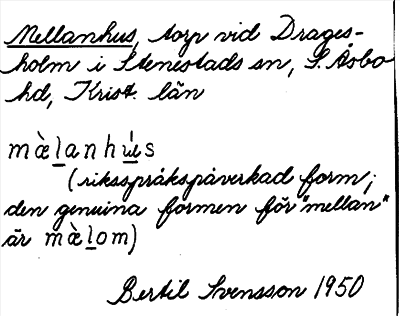 Mellanhus, torp vid Drages-
holm i Stenestads sn, S. Åsbo
hd, Krist. län
mæ̀l̲anhú̲s
(riksspråkspåverkad form;
den genuina formen för "mellan"
är mæ̀l̲om)
Bertil Svensson 1950